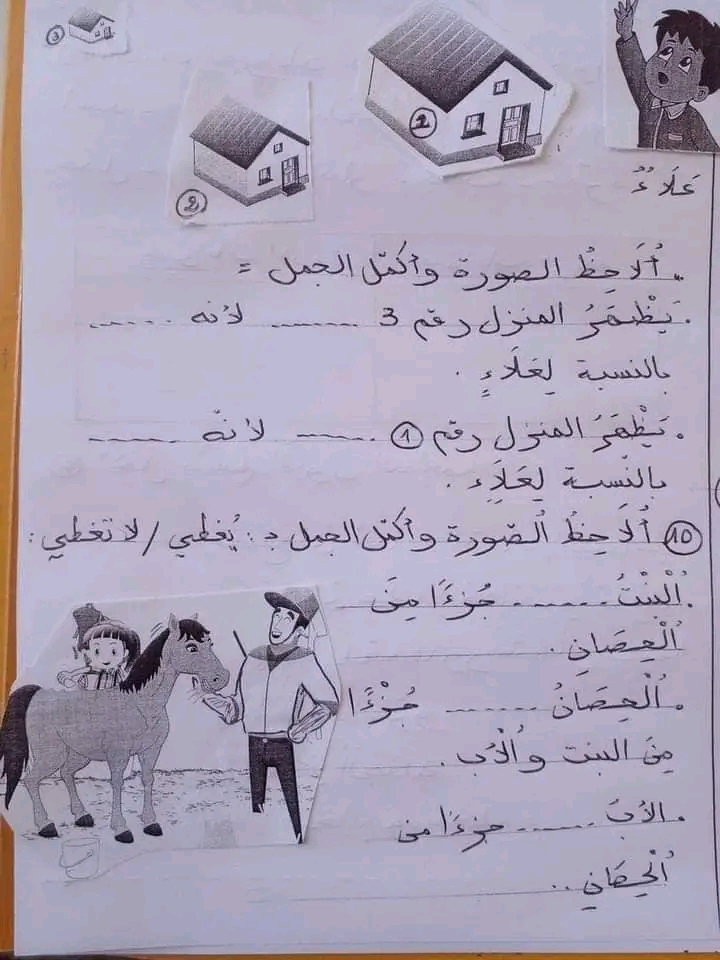 3
1
2
عَلَاءُ
. أُلَاحِظُ الصورة وأكمّل الجمل =
. يَظْهَرُ المنزل رقم 3 ........ لأنه ........
بالنسبة لِعَلَاءٍ .
. يَظْهَرُ المنزل رقم 1 ........ لأنّه ........
بالنّسبة لِعَلَاءٍ .
10 أُلَاحِظُ الصّورة وأكمّل الجمل بـ : يُغطي / لا تغطي :
. اُلْبِنْتُ ........ جُزءًَا مِنَ
اُلْحِصَانِ .
. اُلْحِصَانُ ........ جُزْءًا
مِنَ البنت واُلْأب .
. الأبَ ........ جزءًَا من
اُلْحِصَانِ ..